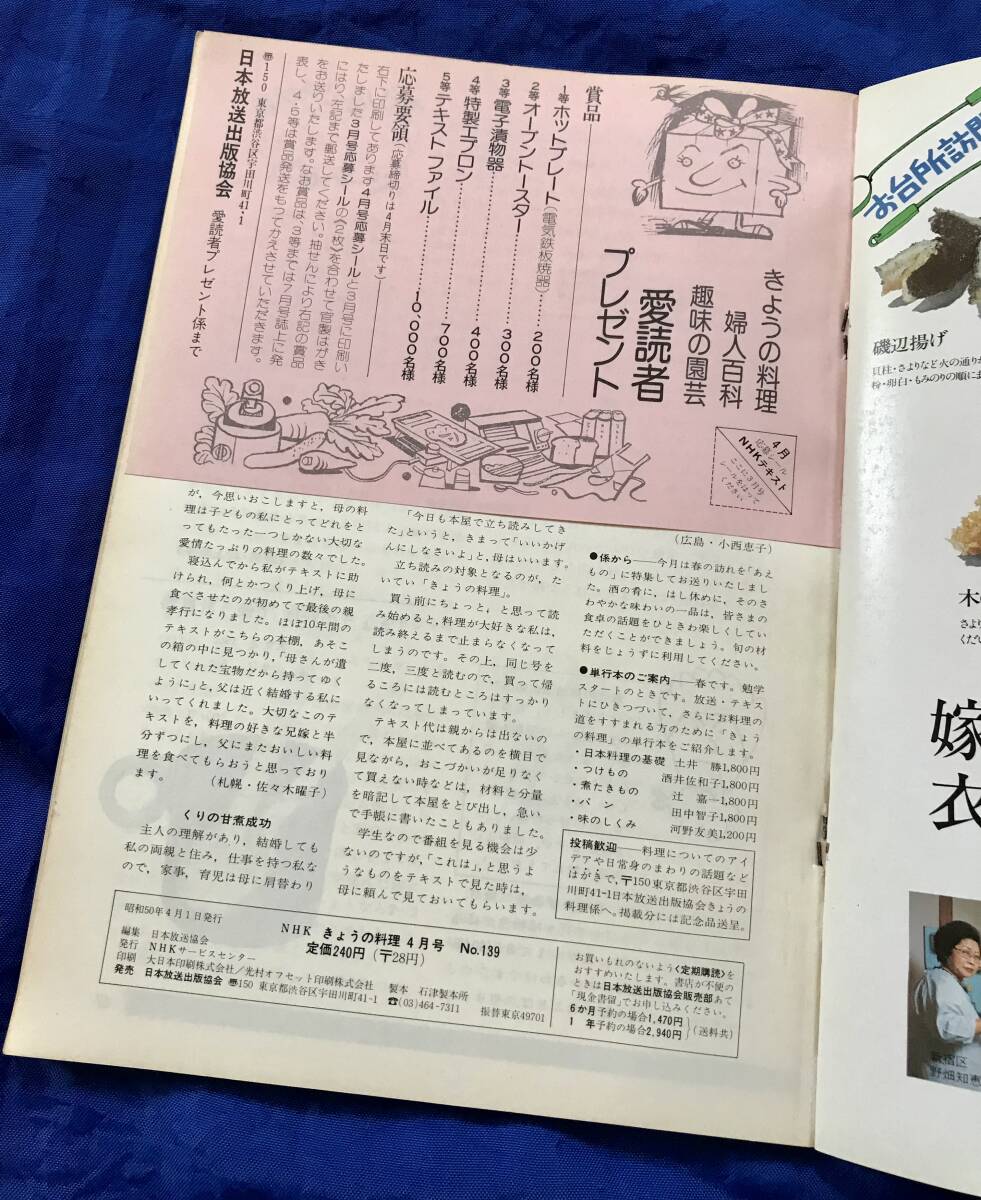 きょうの料理
婦人百科
趣味の園芸
愛読者
プレゼント
4月
応募シール
NHKテキスト
ここに3月号
シールをはって
ください
賞品
1等 ホットプレート(電気鉄板焼器)……200名様
2等 オーブントースター……300名様
3等 電子漬物器……300名様
4等 特製エプロン……400名様
5等 テキスト ファイル……700名様
10,000名様
応募要領(応募締切りは4月末日です)
右下に印刷してあります4月号応募シールと3月号に印刷い
たしました3月号応募シールの《2枚》を合わせて官製はがき
にはり、左記まで郵送してください。抽せんにより右記の賞品
をお送りいたします。なお賞品は、3等までは7月号誌上に発
表し、4・5等は賞品発送をもってかえさせていただきます。
〒150 東京都渋谷区宇田川町41-1
日本放送出版協会 愛読者プレゼント係まで
が，今思いおこしますと，母の料
理は子どもの私にとってどれをと
ってもたった一つしかない大切な
愛情たっぷりの料理の数々でした。
寝込んでから私がテキストに助
けられ，何とかつくり上げ，母に
食べさせたのが初めてで最後の親
孝行になりました。ほぼ10年間の
テキストがこちらの本棚，あそこ
の箱の中に見つかり，「母さんが遺
してくれた宝物だから持ってゆく
ように」と，父は近く結婚する私に
いってくれました。大切なこのテ
キストを，料理の好きな兄嫁と半
分ずつにし，父にまたおいしい料
理を食べてもらおうと思っており
ます。 (札幌・佐々木曜子)
くりの甘煮成功
主人の理解があり，結婚しても
私の両親と住み，仕事を持つ私な
ので，家事，育児は母に肩替わり
「今日も本屋で立ち読みしてき
た」というと，きまって「いいかげ
んにしなさいよ」と，母はいいます。
立ち読みの対象となるのが，た
いてい「きょうの料理」。
買う前にちょっと，と思って読
み始めると，料理が大好きな私は，
読み終えるまで止まらなくなって
しまうのです。その上，同じ号を
二度，三度と読むので，買って帰
るころには読むところはすっかり
なくなってしまっています。
テキスト代は親からは出ないの
で，本屋に並べてあるのを横目で
見ながら，おこづかいが足りなく
て買えない時などは，材料と分量
を暗記して本屋をとび出し，急い
で手帳に書いたこともありました。
学生なので番組を見る機会は少
ないのですが，「これは」，と思うよ
うなものをテキストで見た時は，
母に頼んで見ておいてもらいます。
(広島・小西恵子)
●係から――今月は春の訪れを「あえ
もの」に特集してお送りいたしまし
た。酒の肴に，はし休めに，そのさ
わやかな味わいの一品は，皆さまの
食卓の話題をひときわ楽しくしてい
ただくことができましょう。旬の材
料をじょうずに利用してください。
●単行本のご案内――春です。勉学
スタートのときです。放送・テキス
トにひきつづいて，さらにお料理の
道をすすまれる方のために「きょう
の料理」の単行本をご紹介します。
・日本料理の基礎 土井 勝1,800円
・つけもの 酒井佐和子1,800円
・煮たきもの 辻 嘉一1,800円
・パ ン 田中智子1,800円
・味のしくみ 河野友美1,200円
投稿歓迎――料理についてのアイ
デアや日常身のまわりの話題など
はがきで，〒150東京都渋谷区宇田
川町41-1日本放送出版協会きょうの
料理係へ。掲載分には記念品送呈。
昭和50年4月1日発行
NHK きょうの料理 4月号 No.139
定価240円(〒28円)
編集 日本放送協会
発行 NHKサービスセンター
印刷 大日本印刷株式会社／光村オフセット印刷株式会社 製本 石津製本所
発売 日本放送出版協会 〒150 東京都渋谷区宇田川町41-1 ☎(03)464-7311 振替東京49701
お買いもれのないよう〈定期購読〉を
おすすめいたします。書店が不便の
ときは日本放送出版協会販売部あて
「現金書留」でお申し込みください。
6か月予約の場合1,470円
1 年予約の場合2,940円 (送料共)
お台所訪問
磯辺揚げ
貝柱・さよりなど火の通りが
粉・卵白・もみのりの順にま
木の
さより
くだい
嫁
衣
新宿区
野畑知恵